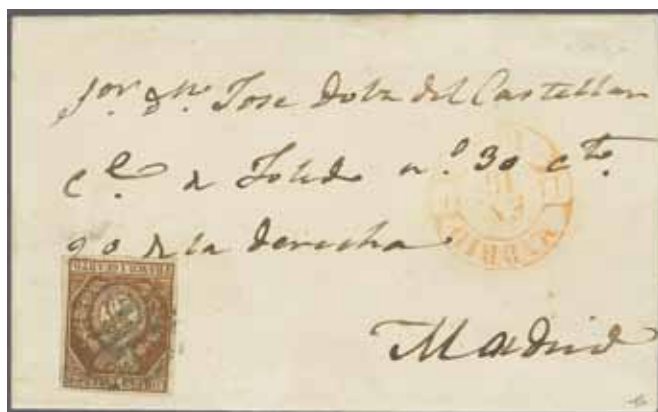 Sor. Dn. Jose Dola del Castellan
Ce. de Toledo n.o 30 cto.
2o de la derecha
Madrid
MADRID